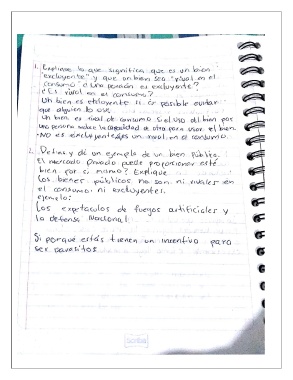 1. Explique lo que significa que es un bien
"excluyente" y que un bien sea "rival en el
consumo" ¿Una pensión es excluyente?
¿Es rival en el consumo?
Un bien es excluyente si es posible evitar
que alguien lo use
Un bien es rival de consumo si el uso del bien por
una persona reduce la capacidad de otra para usar el bien
No es excluyente es un rival en el consumo.
2. Defina y dé un ejemplo de un bien Público.
El mercado privado puede proporcionar este
bien por si mismo? Explique
Los bienes públicos no son ni rivales en
el consumo ni excluyentes.
ejemplo:
Los espetaculos de fuegos artificiales y
la defensa Nacional
Si porque estás tienen un incentivo para
ser parásitos